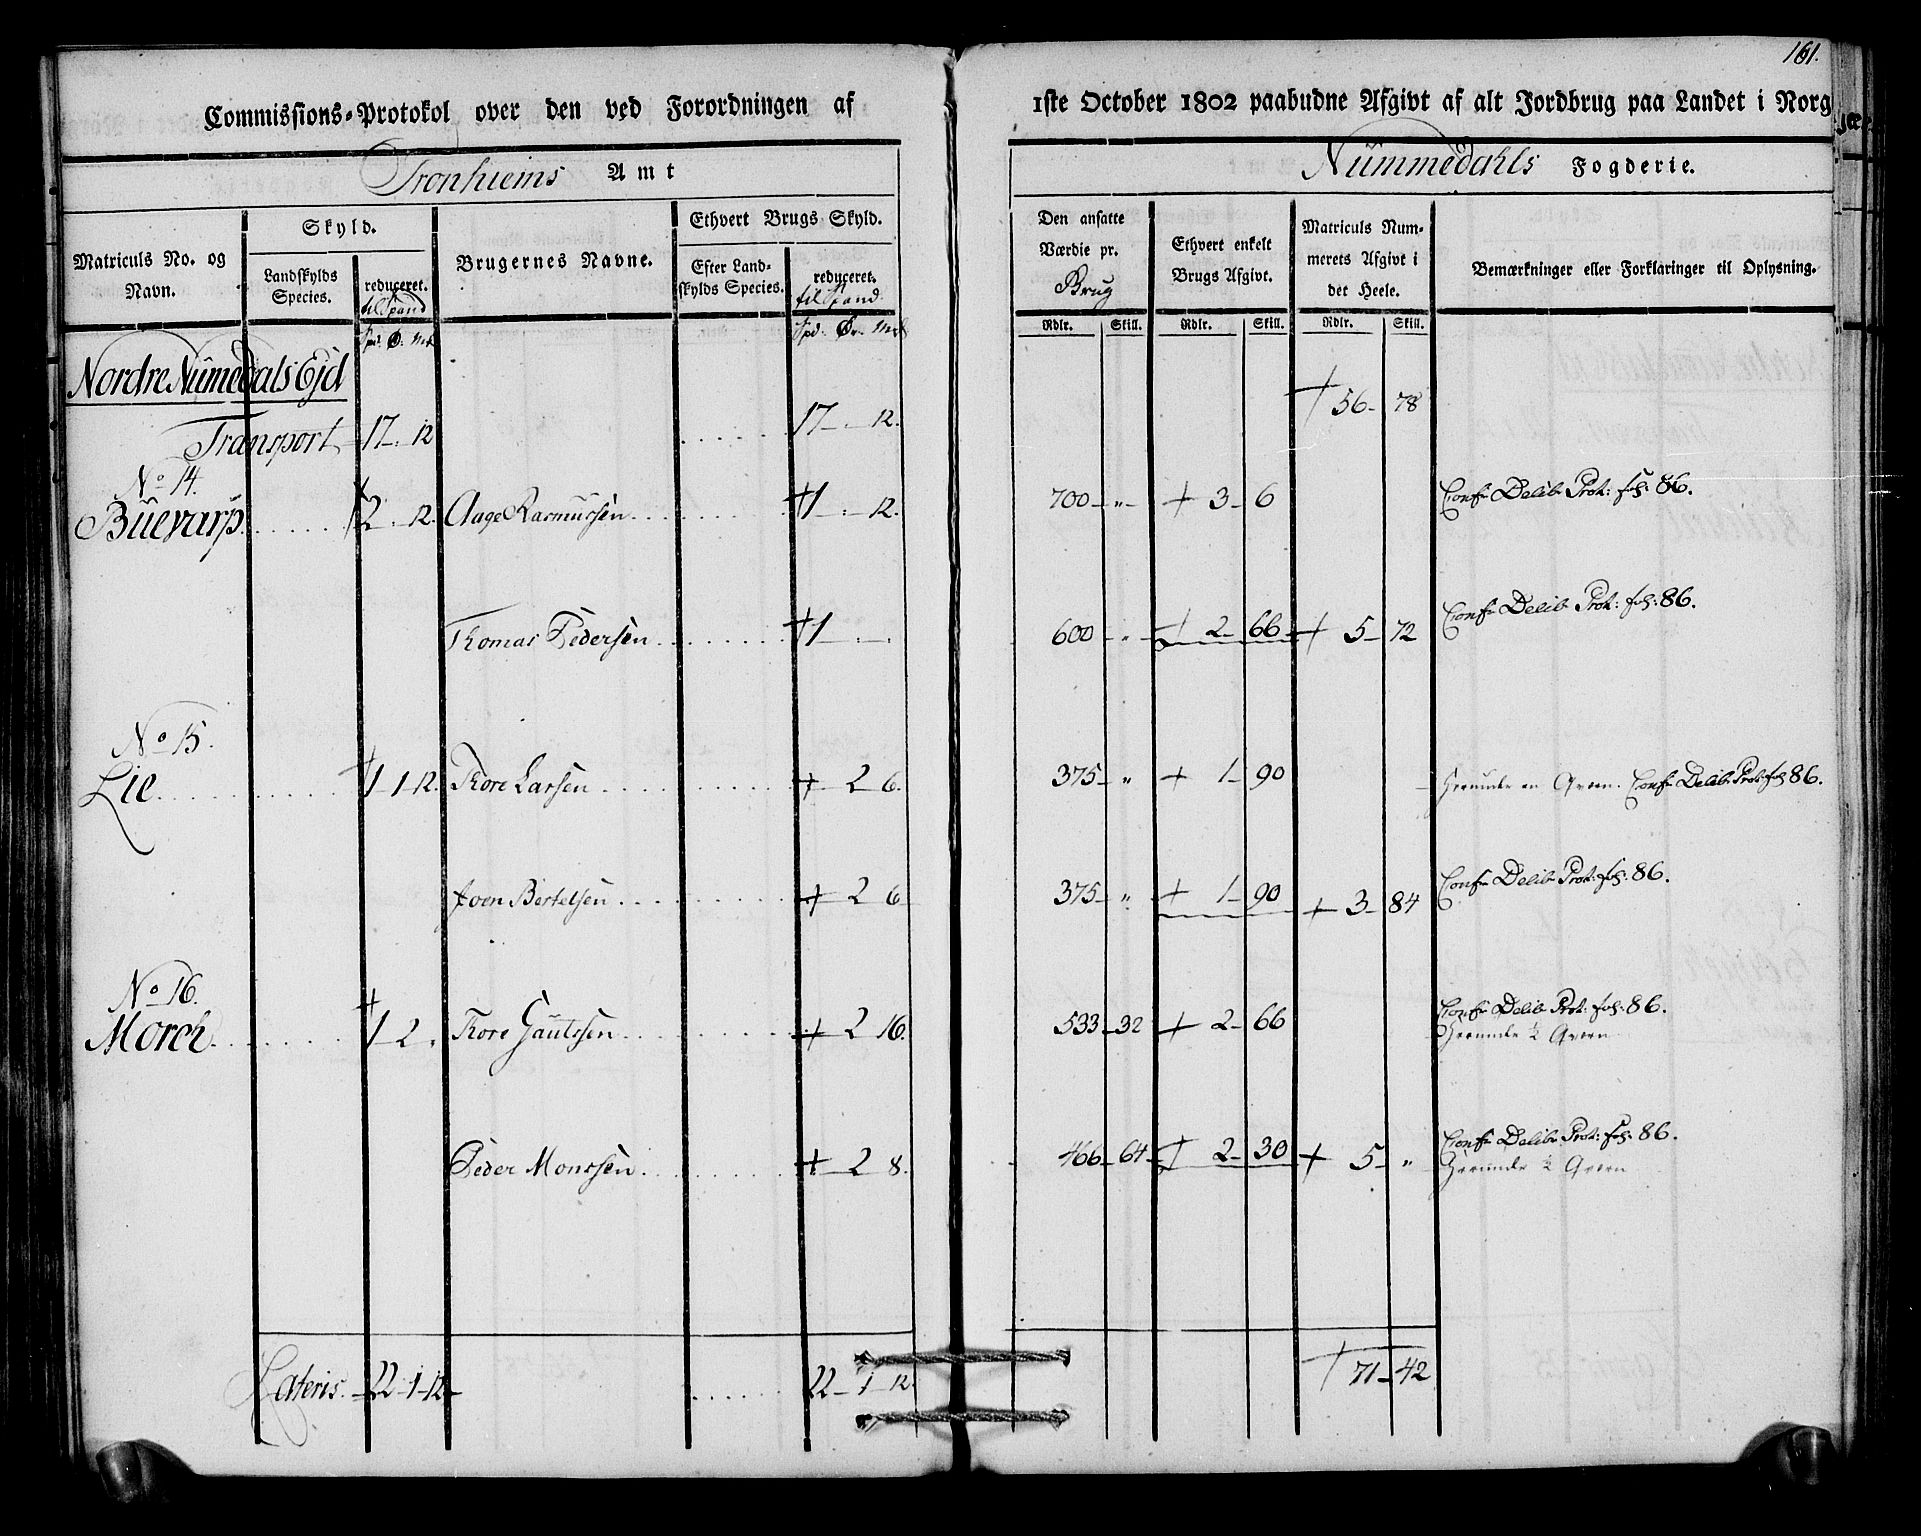 161.
Commissions-Protokol over den ved Forordningen af 1ste October 1802 paabudne Afgivt af alt Jordbrug paa Landet i Norg
Tronhiems Amt Nummedahls Fogderie.
Matriculs No. og Navn.
Skyld.
Landskylds Species.
reduceret. til Spand
Spd. Ø. Mk
Brugernes Navne.
Ethvert Brugs Skyld.
Efter Landskylds Species.
reduceret. til Spand.
Spd. Ør. Mk
Den ansatte Værdie pr. Brug
Rdlr. Skill.
Ethvert enkelt Brugs Afgivt.
Rdlr. Skill.
Matriculs Nummerets Afgivt i det Heele.
Rdlr. Skill.
Bemærkninger eller Forklaringer til Oplysning.
Nordre Numedals Ejd
Transport 17 - . 12 . . . . . 17 - . - 12. + 56 - 78
No 14.
+ 2 . 12. Aage Rasmussen . . . . +1 - . - 12. 700 - „ - + 3 - 6 Confr Delib. Prot: fol: 86.
Thomas Pedersen . . . . +1 - . - 600 - „ - + 2 - 66 + 5 - 72 Confr Delib. Prot: fol: 86.
No 15.
Lie . . . . . +1 - 1 - 12. Thore Larsen . . . . + 2 6. 375 - „ + 1 - 90 Herunde en Qværn. Confr Delib. Prot: fol 86.
Joen Bertelsen . . . . + 2 6 375 - „ + 1 - 90 + 3 - 84 Confr Delib. Prot: fol: 86.
No 16.
Morch . . . . . +1 2 „ Thore Gautssen . . . . + 2 16. 533 - 32 + 2 - 66 Confr Delib. Prot: fol: 86.
Herunde ½ Qværn
Peder Monssen . . . . + 2 8. 466 - 64 + 2 - 30 + 5 - „ Confr Delib. Prot: fol: 86.
Herunde ½ Qværn
Lateris. 22 - 1 - 12 . . . . . 22 - 1 - 12. + 71 - 42